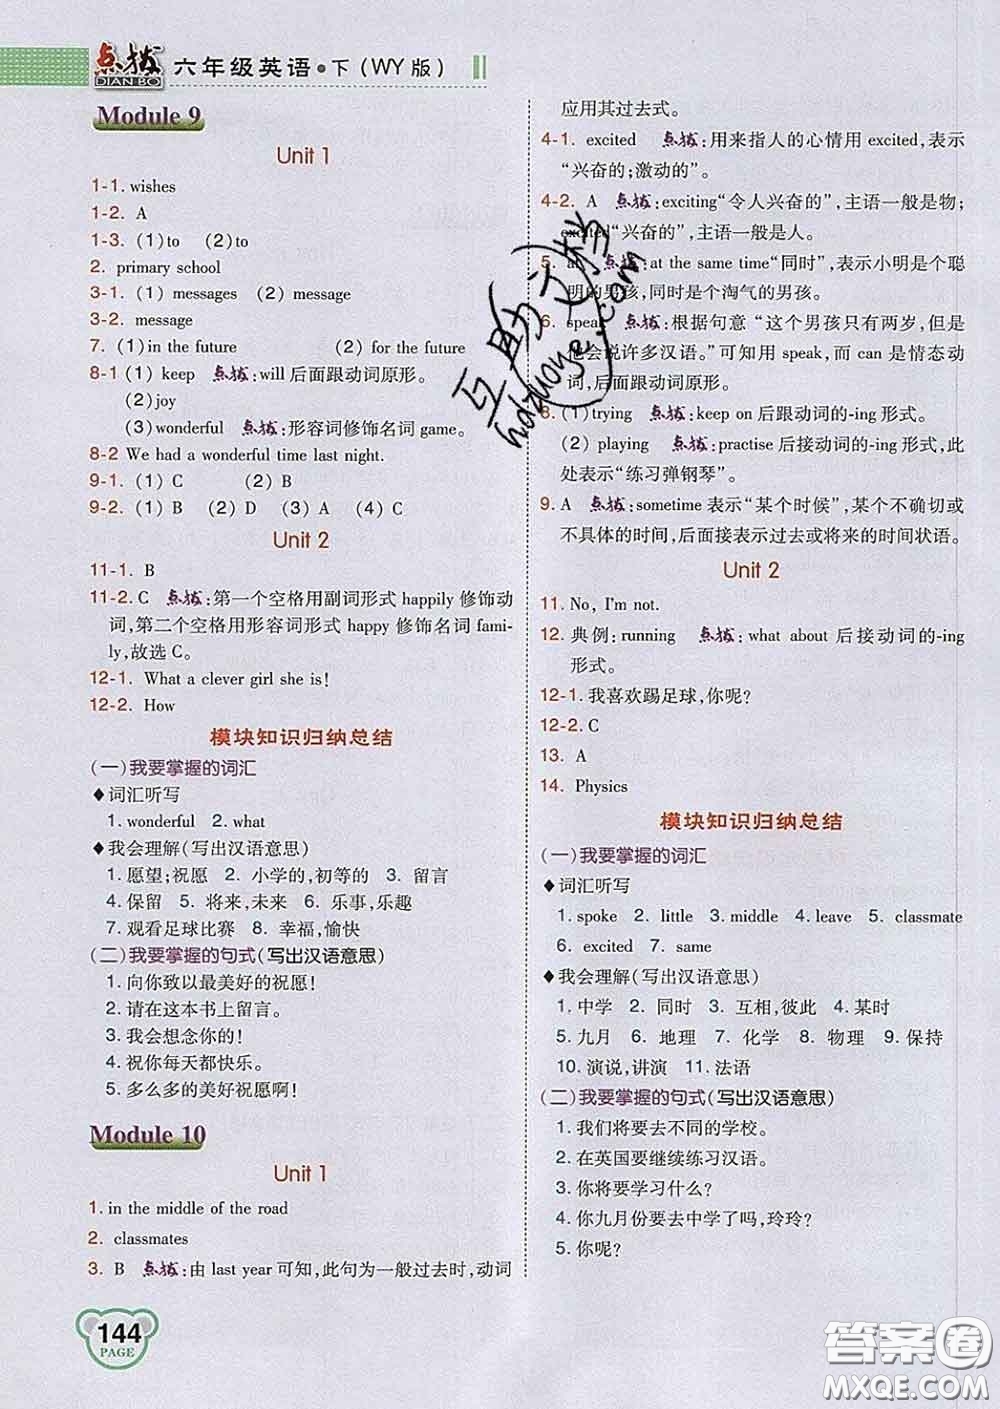 点拨 DIAN BO 六年级英语·下（WY版）
Module 9
Unit 1
1-1. wishes
1-2. A
1-3. (1)to (2)to
2. primary school
3-1. (1) messages (2) message
3-2. message
7. (1)in the future (2) for the future
8-1 (1) keep 点拨:will后面跟动词原形。
(2)joy
(3)wonderful 点拨:形容词修饰名词 game。
8-2 We had a wonderful time last night.
9-1. (1) C (2) B
9-2. (1) B (2) D (3) A (4) C
Unit 2
11-1. B
11-2. C 点拨:第一个空格用副词形式 happily 修饰动
词,第二个空格用形容词形式 happy 修饰名词 fami-
ly,故选 C。
12-1. What a clever girl she is!
12-2. How
模块知识归纳总结
(一)我要掌握的词汇
◆词汇听写
1. wonderful 2. what
◆我会理解(写出汉语意思)
1. 愿望;祝愿 2. 小学的,初等的 3. 留言
4. 保留 5. 将来,未来 6. 乐事,乐趣
7. 观看足球比赛 8. 幸福,愉快
(二)我要掌握的句式(写出汉语意思)
1. 向你致以最美好的祝愿!
2. 请在这本书上留言。
3. 我会想念你的!
4. 祝你每天都快乐。
5. 多么多的美好祝愿啊!
Module 10
Unit 1
1. in the middle of the road
2. classmates
3. B 点拨:由 last year 可知,此句为一般过去时,动词
144
PAGE
应用其过去式。
4-1. excited 点拨:用来指人的心情用 excited,表示
“兴奋的;激动的”。
4-2. A 点拨:exciting“令人兴奋的”,主语一般是物;
excited“兴奋的”,主语一般是人。
5. at 点拨:at the same time“同时”,表示小明是个聪
明的男孩,同时是个淘气的男孩。
6. speak 点拨:根据句意“这个男孩只有两岁,但是
他会说许多汉语。”可知用 speak,而 can 是情态动
词,后面跟动词原形。
8. (1)trying 点拨:keep on 后跟动词的-ing 形式。
(2) playing 点拨:practise 后接动词的-ing 形式,此
处表示“练习弹钢琴”。
9. A 点拨:sometime 表示“某个时候”,某个不确切或
不具体的时间,后面接表示过去或将来的时间状语。
Unit 2
11. No, I'm not.
12. 典例:running 点拨:what about 后接动词的-ing
形式。
12-1. 我喜欢踢足球,你呢?
12-2. C
13. A
14. Physics
模块知识归纳总结
(一)我要掌握的词汇
◆词汇听写
1. spoke 2. little 3. middle 4. leave 5. classmate
6. excited 7. same
◆我会理解(写出汉语意思)
1. 中学 2. 同时 3. 互相,彼此 4. 某时
5. 九月 6. 地理 7. 化学 8. 物理 9. 保持
10. 演说,讲演 11. 法语
(二)我要掌握的句式(写出汉语意思)
1. 我们将要去不同的学校。
2. 在英国要继续练习汉语。
3. 你将要学习什么?
4. 你九月份要去中学了吗,玲玲?
5. 你呢?
互助文档
hdzuoye.com
答案圈
MXQE.COM